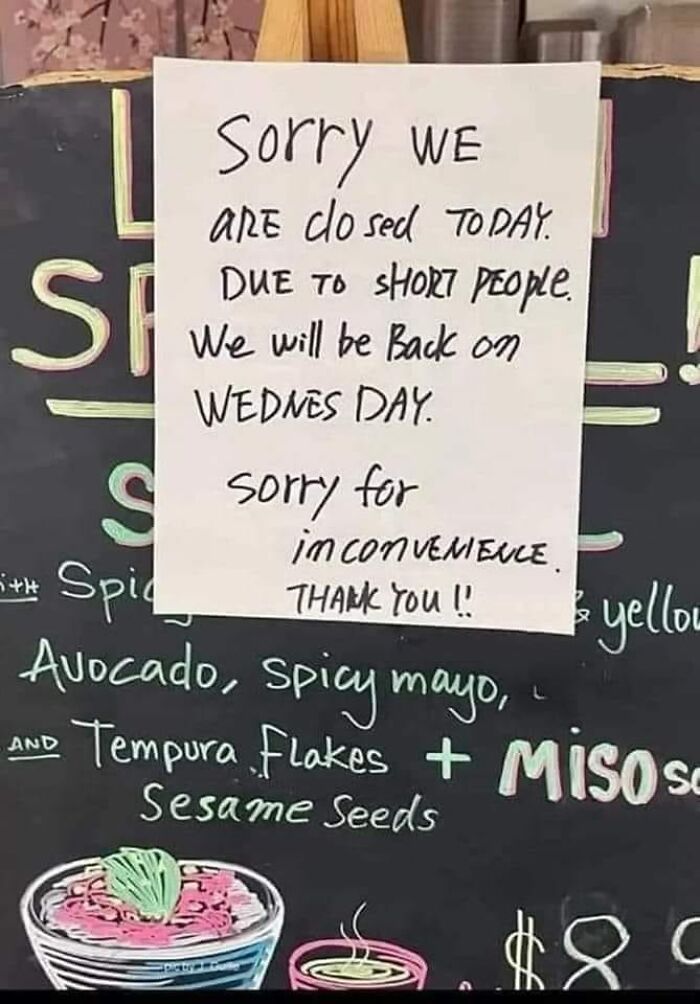 Sorry WE
ARE closed TODAY.
DUE TO SHORT PEOPLE.
We will be Back on
WEDNESDAY.
sorry for
inconVENIENCE.
THANK YOU !!
L
SP !
S
Spic & yellow
Avocado, spicy mayo,
AND Tempura Flakes + MISO
Sesame Seeds
$8